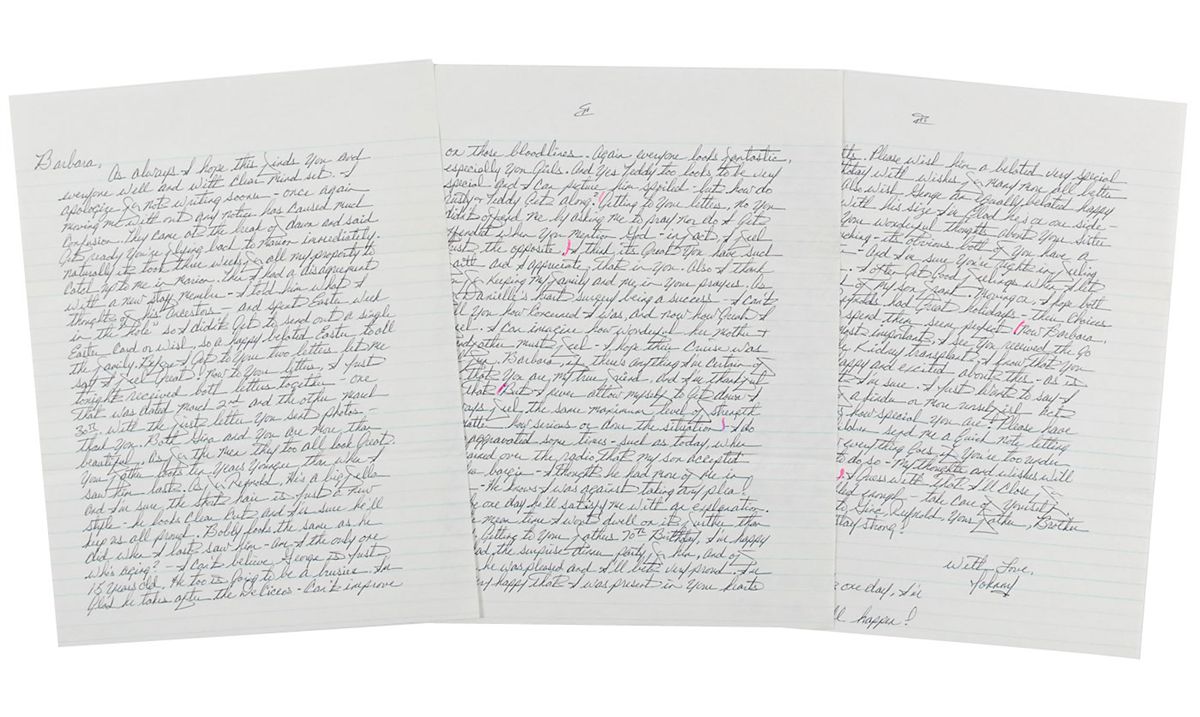 Barbara,
As always I hope this finds you and
everyone well and with clear mind set. I
apologize for not writing sooner - once again
moving me with out any notice has caused much
confusion. They came at the break of dawn and said
Get ready you're flying back to Marion immediately.
naturally it took three weeks for all my property to
catch up to me in Marion. Then I had a disagreement
with a new staff member - I told him what I
thought of his ancestors - and spent Easter week
in the "hole" so I didn't get to send out a single
Easter card or wish, so a happy belated Easter to all
the family. Before I get to your two letters, let me
say I feel great. Now to your letters, I just
tonight received both letters together - one
that was dated March 2nd and the other March
30th. With the first letter you sent photos, -
thank you. Both Gina and you are more than
beautiful. As for the men they too all look great.
Your father looks ten years younger than when I
saw him last. As for Reynold, He's a big fella
and I'm sure the short hair is just a new
style - he looks clean cut and I'm sure he'll
keep us all proud. Bobby looks the same as he
did when I last saw him - am I the only one
who's aging? - I can't believe George is just
15 years old. He too is going to be a bruiser - I'm
glad he takes after the DeCiccos - Can't improve
II
on those bloodlines. Again everyone looks fantastic,
especially you Girls. And yes Teddy too looks to be very
special and I can picture him spoiled - but how do
and Teddy get along? Getting to your letter, no you
didn't offend me by asking me to pray nor do I get
offended when you mention God - in fact I feel
just the opposite. I think it's great you have such
faith and I appreciate that in you. Also I thank
for keeping my family and me in your prayers. As
Danielle's heart surgery being a success - I can't
you how concerned I was, and now how great I
feel. I can imagine how wonderful her mother &
must feel - I hope their cruise was
Barbara if there's anything I'm certain of
that you are my true friend, and I'm thankful
that. But I never allow myself to get down I
feel the same maximum level of strength
how serious or dire the situation. I do
aggravated some times - such as today, when
over the radio that my son accepted
bargin - I thought he had more of me in
- He knows I was against taking any plea.
one day he'll satisfy me with an explanation.
mean time I won't dwell on it further than
Getting to your father's 70th Birthday, I'm happy
had the surprise dinner party for him, and of
he was pleased and I'll bet very proud. I'm
happy that I was present in your hearts
III
Please wish him a belated very special
with wishes for many more all better
Also wish George an equally belated happy
with his size I'm glad he's on our side -
you wonderful thoughts about your sister
- it's obvious both of you have a
- And I'm sure you're right in feeling
- I often get good feelings when I let
of my son Frank. Moving on, I hope both
had great holidays - their choices
spend them seem perfect. Now Barbara,
most important, I see you received the go
Kidney transplant. I know that you
happy and excited about this - as is
I'm sure. I just want to say - I
a finer or more unselfish act
how special you are! Please have
send me a quick note letting
everything goes, if you're too under
to do so - My thoughts and wishes will
I guess with that I'll close for
enough - take care of yourself,
to Gina, Reynold, your father, Brother
Stay strong!
With love,
Johnny
one day, I'm
happen!